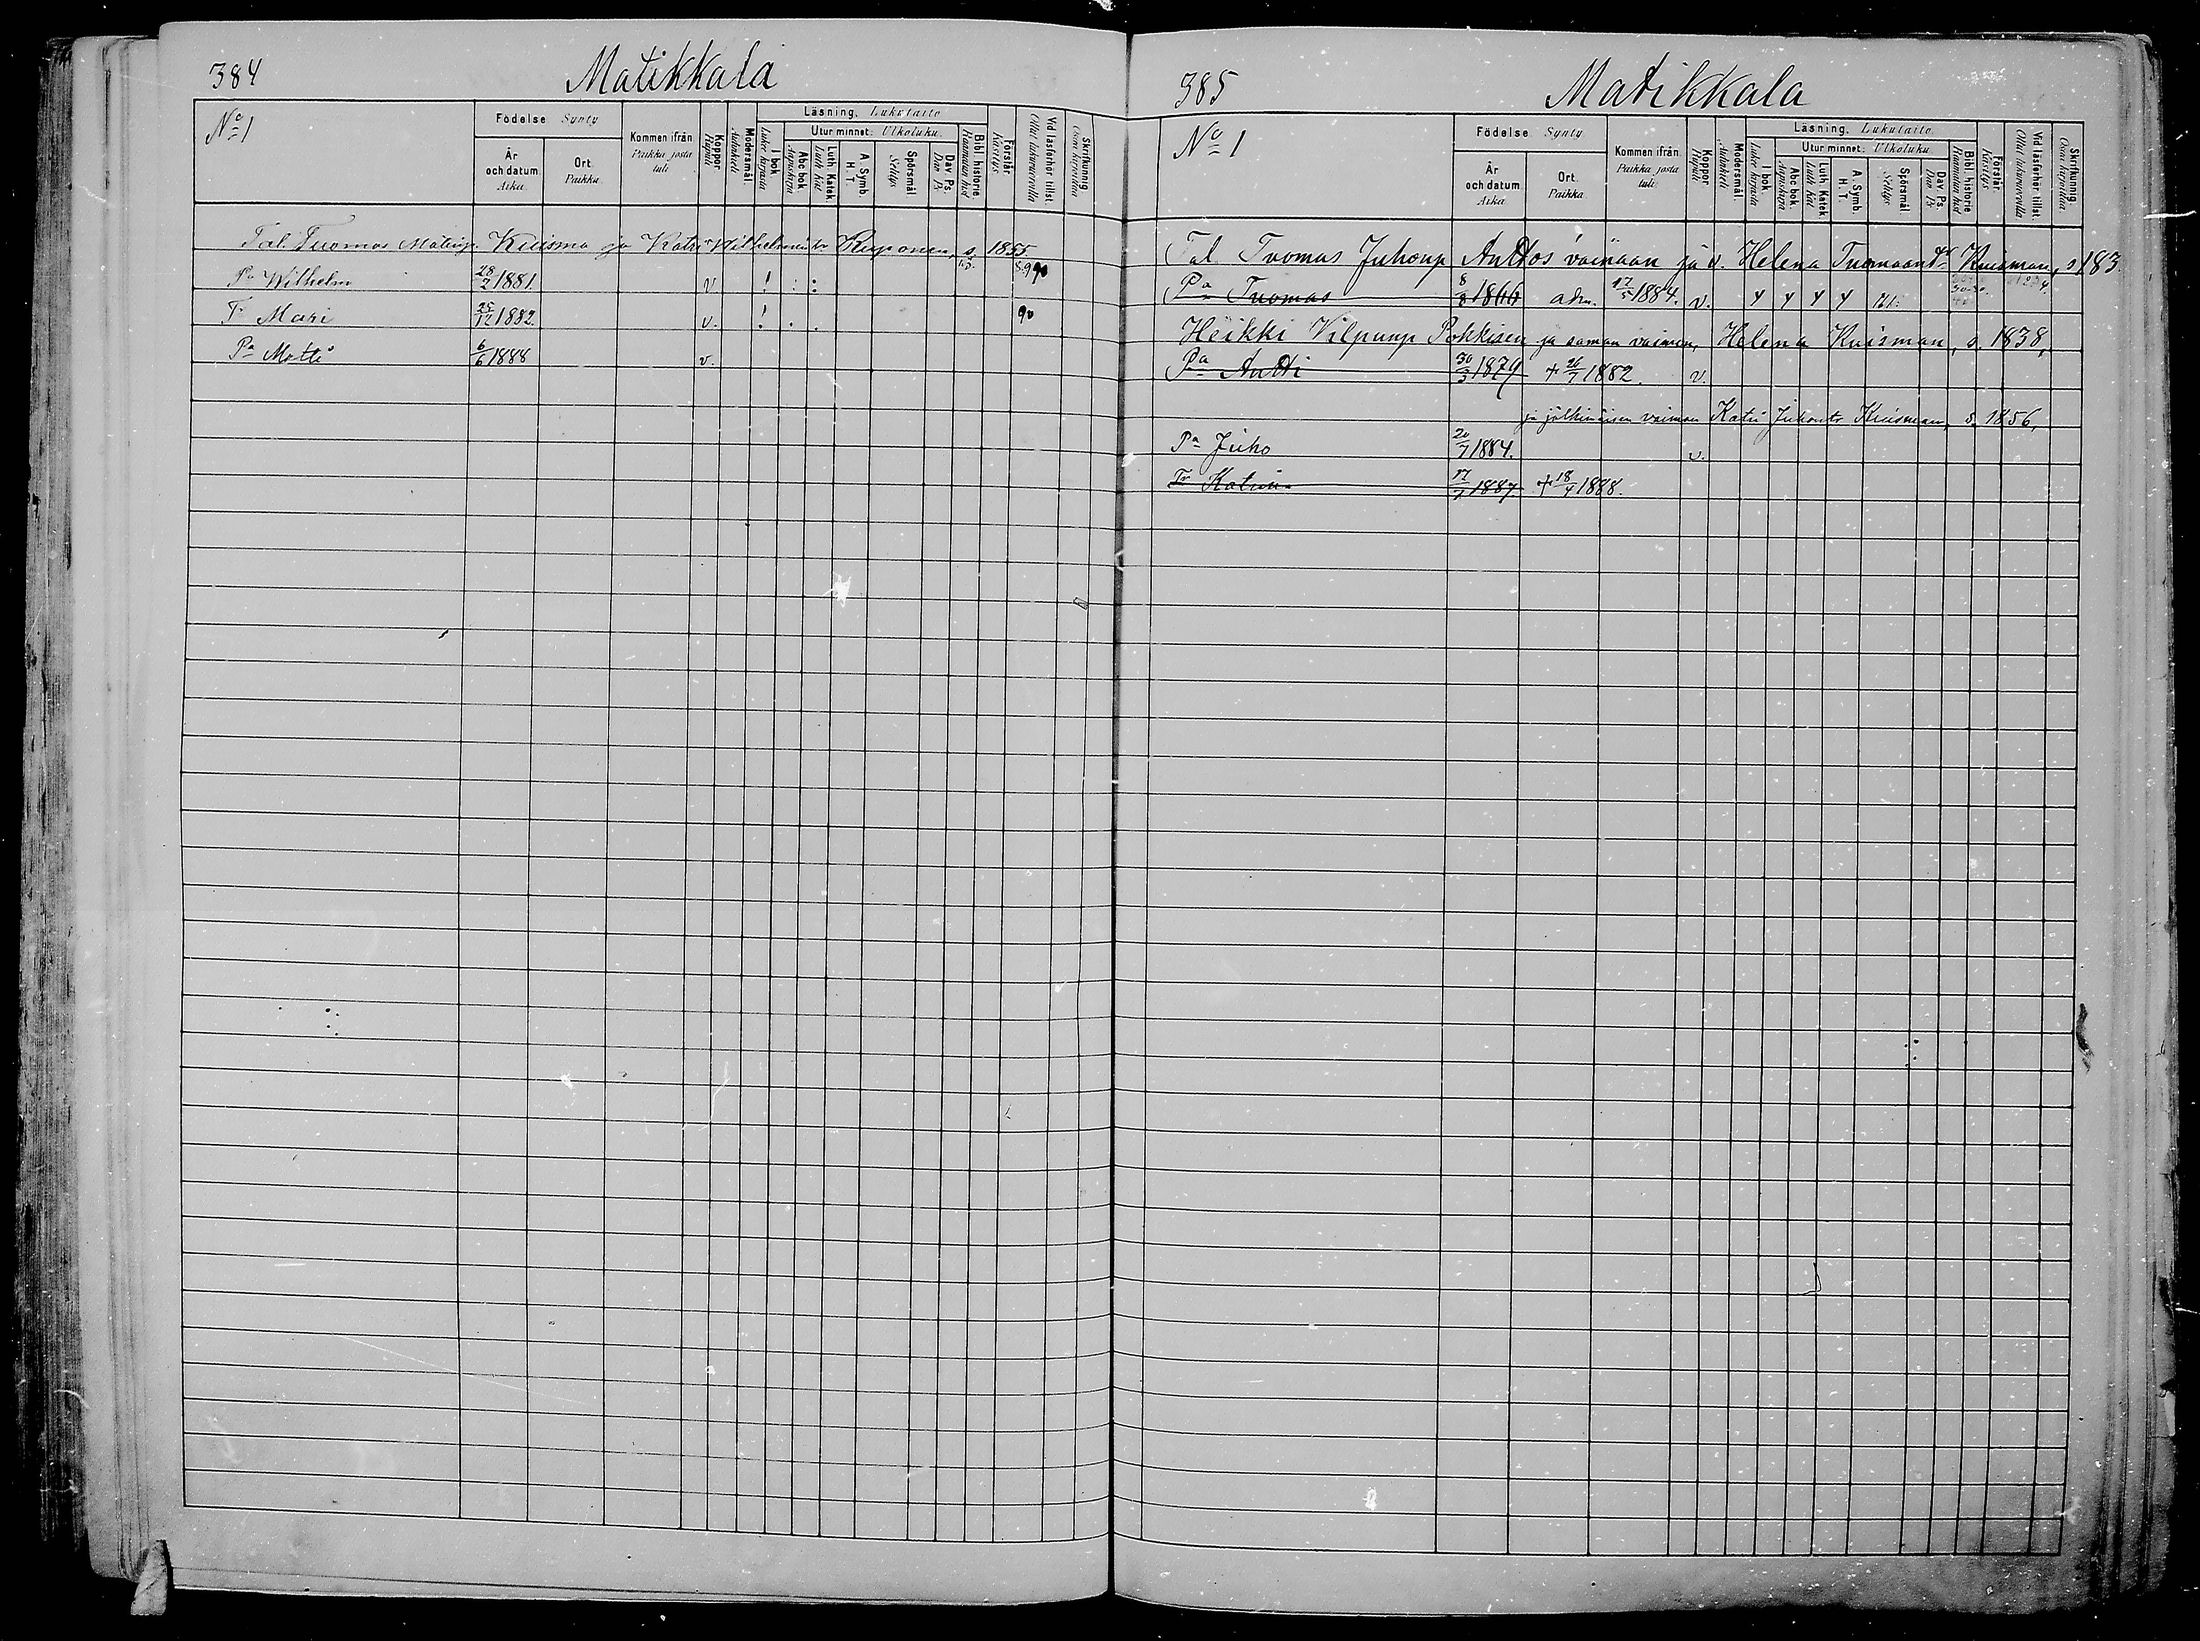 384 Matikkala
No 1
Födelse Synty
År och datum. Aika.
Ort. Paikka.
Kommen ifrån Paikka josta tuli
Koppor Rupuli
Modersmål. Äidinkieli
Läsning. Lukutaito
I bok Lukee kirjasta
Utur minnet: Ulkoluku.
Abc bok Aapiskirja
Luth. Katek. Luth Kat.
A. Symb. H. T.
Spörsmål Selitys
Dav. Ps. Dav. Ps.
Bibl. historie. Raamatun hist
Förstår Käsitys
Vid läsförhör tillst. Ollut lukuvuorolla
Skrifkunnig Osaa kirjoittaa
Tal. Tuomas Matinp. Kuisma ja Katri Wilhelmintr Ruponen, s. 1855
Pa Wilhelm 28/2 1881. v. ! . : 89 90
Tr Mari 25/12 1882. v. ! . . 90
Pa Matti 6/6 1888 v.
385 Matikkala
No 1
Födelse Synty
År och datum Aika
Ort. Paikka.
Kommen ifrån Paikka josta tuli.
Koppor Rupuli
Modersmål. Äidinkieli
Läsning. Lukutaito.
I bok Lukee kirjasta
Utur minnet: Ulkoluku.
Abc bok Aapiskirja
Luth. Katek Luth Kat
A. Symb. H. T.
Spörsmål Selitys
Dav. Ps. Dav Ps
Bibl. historie Raamatun hist
Förstår Käsitys
Vid läsförhör tillst. Ollut lukuvuorolla
Skrifkunnig. Osaa kirjoittaa
Tal Tuomas Juhonp Anttos'vainaan ja v. Helena Tuomaantr Kuisman, s 183
Pa Tuomas 8/8 1866 adm. 17/5 1884. v. 4 4 4 4
Heikki Vilpunp Pokkisen ja saman vaimon, Helena Kuisman, s. 1838,
Pa Antti 30/3 1879 + 26/7 1882. v.
ja jälkimäisen vaimon Katri Juhontr Kuisman, s. 1856,
Pa Juho 20/7 1884. v.
Tr Katrin 17/7 1887 + 18/4 1888.